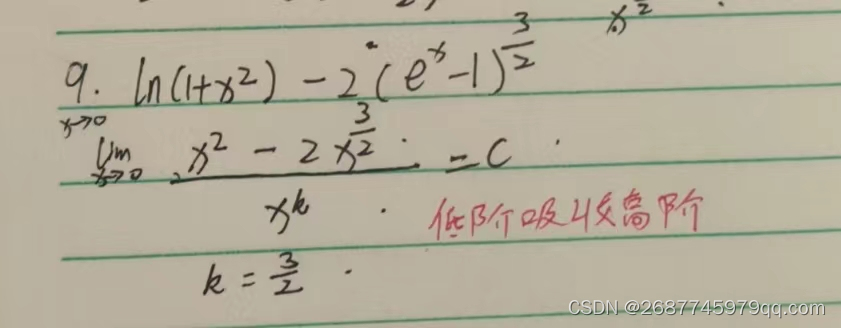 9. ln(1+x²) - 2(eˣ-1)^{3/2}
x→0
lim x→0 (x² - 2x^{3/2}) / x^k = C
低阶吸收高阶
k = 3/2
CSDN @2687745979qq.com